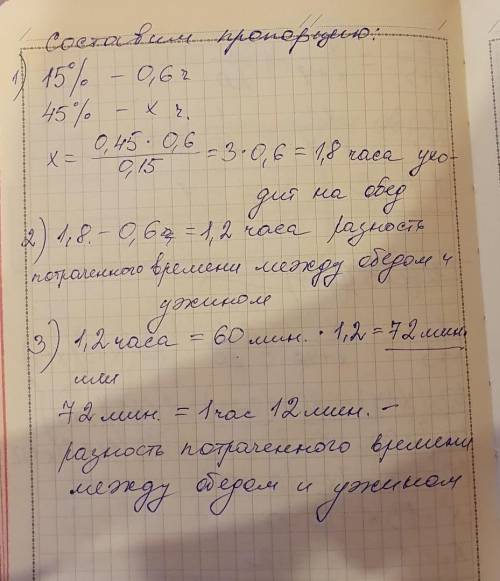 Составим пропорцию:
1) 15% – 0,6 ч
45% – x ч.
x = 0,45 · 0,6 / 0,15 = 3 · 0,6 = 1,8 часа ухо-
дит на обед
2) 1,8 – 0,6 = 1,2 часа разность
потраченного времени между обедом и
ужином
3) 1,2 часа = 60 мин. · 1,2 = 72 мин
или
72 мин. = 1 час 12 мин. –
разность потраченного времени
между обедом и ужином